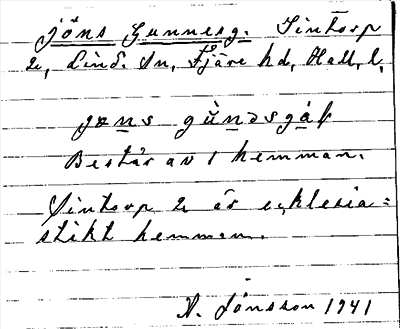 Jöns Gunnesg. Sintorp
2, Lind. sn, Fjäre hd, Hall. l.
jøns gùnəsgåḷ
Består av 1 hemman.
Sintorp 2 är ecklesia=
stikt hemman.
A. Jönsson 1941